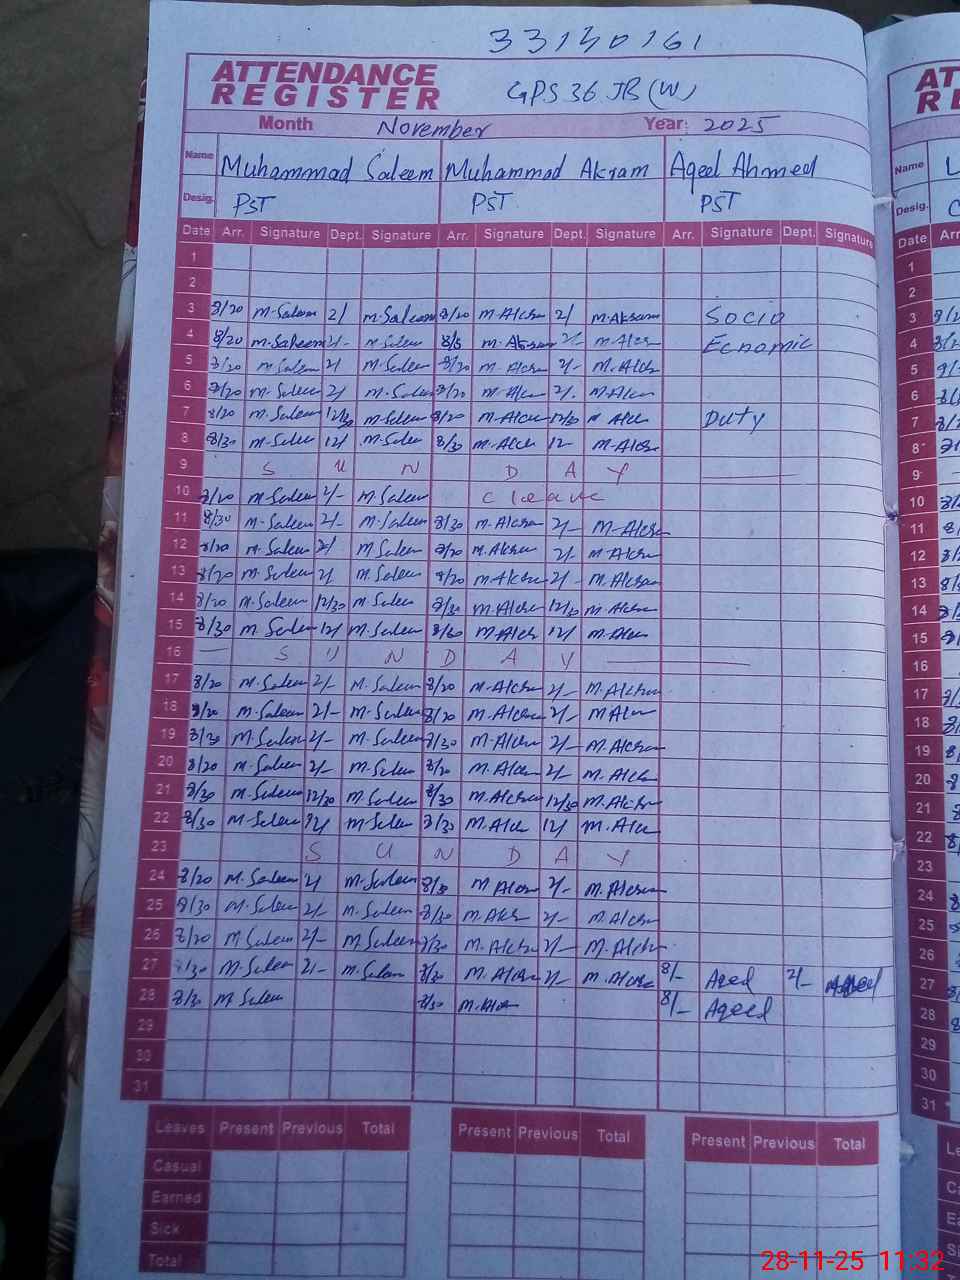 33130161
ATTENDANCE
REGISTER
GPS 36 JB (W)
Month November Year: 2025
Name Muhammad Saleem Muhammad Akram Aqeel Ahmed
Desig. PST PST PST
Date Arr. Signature Dept. Signature Arr. Signature Dept. Signature Arr. Signature Dept. Signature
1
2
3 8/20 M.Saleem 2/ M.Saleem 8/20 M.Akram 2/ M.Akram Socio
4 8/20 M.Saleem 2/- M.Saleem M.Akram 2/- M.Akram Ecnomic
5 8/20 M.Saleem 2/ M.Saleem 8/20 M.Akram 2/- M.Akram
6 8/20 M.Saleem 2/ M.Saleem 8/20 M.Akram 2/. M.Akram
7 8/20 M.Saleem 12/30 M.Saleem 8/20 M.Akram 12/30 M.Akram Duty
8 8/30 M.Saleem 12/ M.Saleem 8/30 M.Akram 12 M.Akram
9 S U N D A Y
10 8/20 M.Saleem 2/- M.Saleem C leave
11 8/30 M.Saleem 2/- M.Saleem 8/30 M.Akram 2/- M.Akram
12 8/20 M.Saleem 2/ M.Saleem 8/20 M.Akram 2/- M.Akram
13 8/20 M.Saleem 2/ M.Saleem 8/20 M.Akram 2/- M.Akram
14 8/20 M.Saleem 12/30 M.Saleem 8/30 M.Akram 12/30 M.Akram
15 8/30 M.Saleem 12/ M.Saleem M.Akram 12/ M.Akram
16 S U N D A Y
17 8/20 M.Saleem 2/- M.Saleem 8/20 M.Akram 2/- M.Akram
18 8/20 M.Saleem 2/- M.Saleem 8/20 M.Akram 2/- M.Akram
19 8/30 M.Saleem 2/- M.Saleem 8/30 M.Akram 2/- M.Akram
20 8/20 M.Saleem 2/- M.Saleem 8/20 M.Akram 2/- M.Akram
21 8/30 M.Saleem 12/30 M.Saleem 8/30 M.Akram 12/30 M.Akram
22 8/30 M.Saleem 12/ M.Saleem 8/30 M.Akram 12/ M.Akram
23 S U N D A Y
24 8/20 M.Saleem 2/ M.Saleem 8/30 M.Akram 2/- M.Akram
25 8/30 M.Saleem 2/- M.Saleem 8/30 M.Akram 2/- M.Akram
26 8/20 M.Saleem 2/- M.Saleem 8/30 M.Akram 2/- M.Akram
27 8/30 M.Saleem 2/- M.Saleem 8/30 M.Akram 2/- M.Akram 8/- Aqeel 2/-
28 8/30 M.Saleem 8/30 M.Akram 8/- Aqeel
29
30
31
Leaves Present Previous Total Present Previous Total Present Previous Total
Casual
Earned
Sick
Total
Name
Desig.
Date Arr
1
2
3
4
5
6
7
8
9
10
11
12
13
14
15
16
17
18
19
20
21
22
23
24
25
26
27
28
29
30
31
28-11-25 11:32